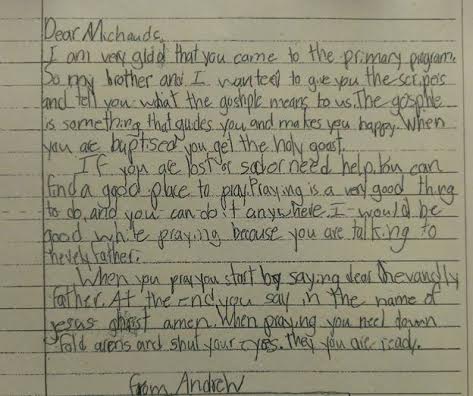 Dear Michauds,
I am very glad that you came to the primary program.
So my brother and I wanted to give you the scripeis
and tell you what the goshple means to us. The gosphle
is something that guides you and makes you happy. When
you are baptised you get the holy goast.
If you are lost or sad or need help. You can
find a good place to pray. Praying is a very good thing
to do, and you can do it anywhere. I would be
good while praying because you are talking to
hevely father.
When you pray you start by saying dear hevandly
father. At the end you say in the name of
jesus ghrist amen. When praying you neel down
fold arems and shut your eyes. Then you are ready.
from Andrew